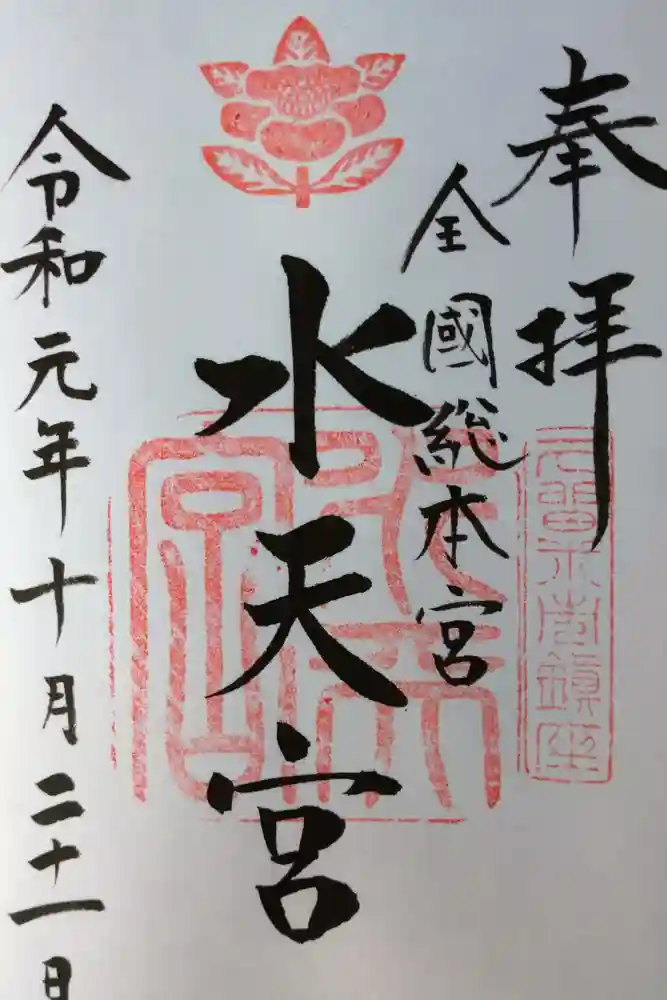 奉拝
全國総本宮
水天宮
令和元年十月二十一日
水天宮